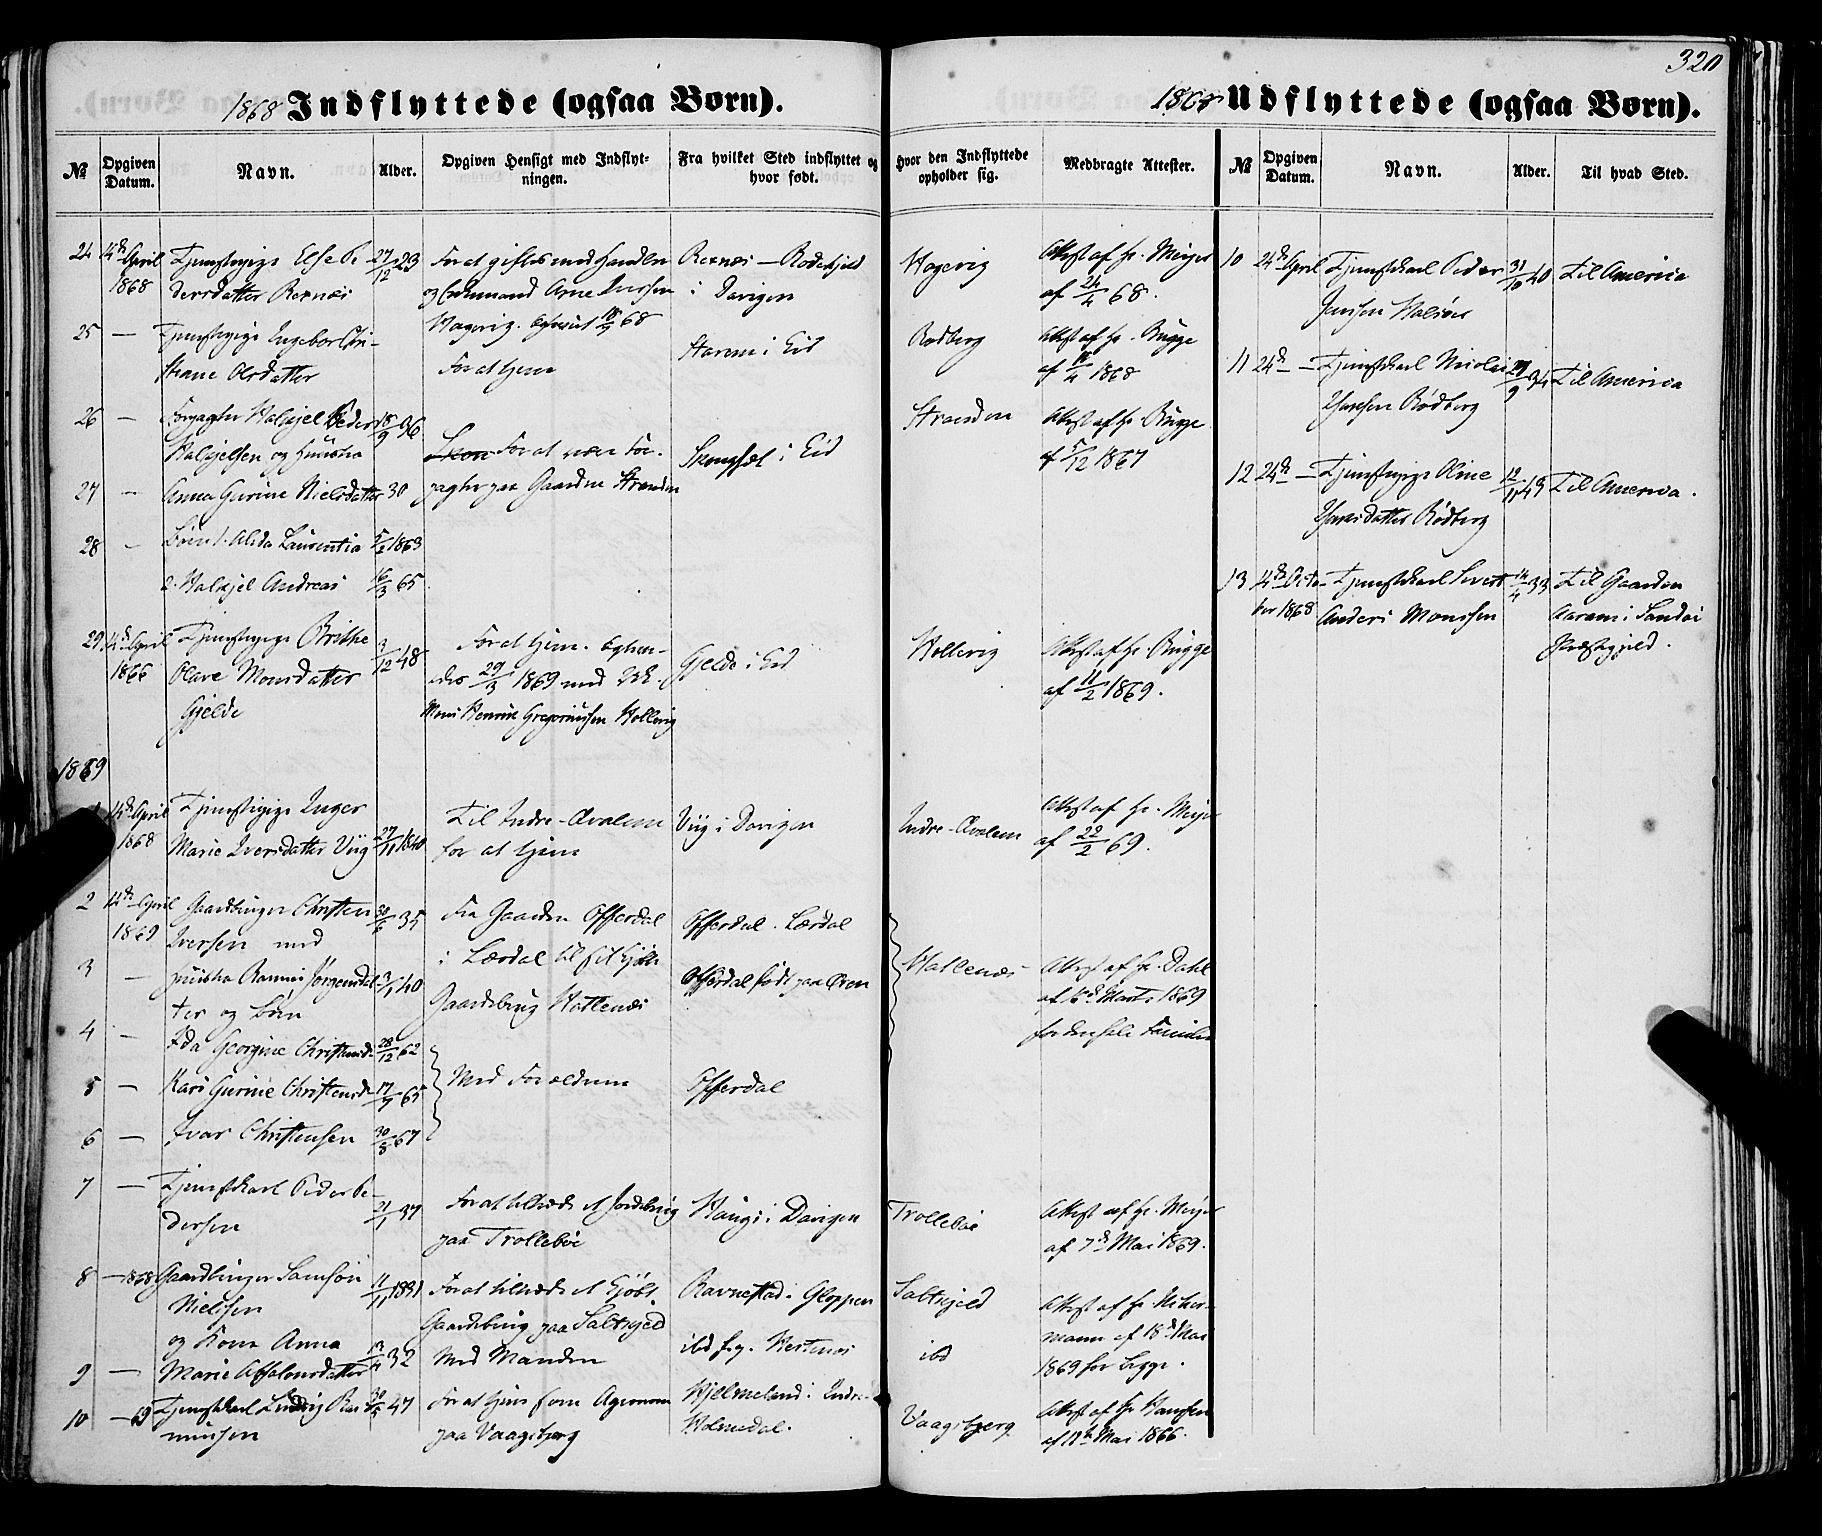 320
1868 Indflyttede (ogsaa Børn).
1868 Udflyttede (ogsaa Børn).
№
Opgiven Datum.
Navn.
Alder.
Opgiven Hensigt med Indflyt-
ningen.
Fra hvilket Sted indflyttet og
hvor født.
Hvor den Indflyttede
opholder sig.
Medbragte Attester.
№
Opgiven Datum.
Navn.
Alder.
Til hvad Sted.
24 14de April 1868
Tjenestepige Else Pe
dersdatter Rexnæs
27/12 23
For at giftes med Handler
og Enkemand Arne Iversen
Hagevig.
Rexnæs
i Davigen
Hagevig
Attest af Hr. Meyer
af 24/4 68.
25 —
Tjenestepige Ingebor Chri-
stiane Olsdatter
For at tjene
Starem i Eid
Rødberg
Attest af Hr. Bugge
af 18/4 1868
26 —
Forpagter Halkjel Peder
Halkjelsen og Hustru
18/9 36
For at være For-
pagter paa Gaarden Stranden
Skongsæt i Eid
Stranden
Attest af Hr. Bugge
af 5/12 1867
27 —
Anna Gurine Nielsdatter 30
28 —
Børn 1. Alida Laurentia 5/2 1863
2. Halkjel Andreas 16/3 65.
29 14de April 1866
Tjenestepige Brithe
Olave Monsdatter
Gjelde
3/12 48
For at tjene.
29/3 1869 med
Henrik Gregoriussen Hollevig
Gjelde i Eid
Hollevig
Attest af Hr. Bugge
af 11/2 1869.
1869
1 14de April 1868
Tjenestepige Inger
Marie Iversdatter Viig
27/11 1840
Til Indre-Qvalem
for at tjene
Viig i Davigen
Indre-Qvalem
Attest af Hr. Meyer
af 22/2 69.
2 14de April 1869
Gaardbruger Christen
Iversen med
30/6 35
Fra Gaarden Offerdal
i Lærdal til sit kjøbte
Gaardsbrug Hatlenæs
Offerdal. Lærdal
Hatlenæs
Attest af Hr. Dahl
af Marts 1869
for den hele Familie
3 —
Hustru Jørgensdat
ter og Børn
3/1 40
Offerdal født paa Øren
4 —
Ida Georgine Christensd.
28/12 62
5 —
Kari Gurine Christensd.
17/7 65
Med Forældrene
Offerdal
6 —
Ivar Christensen
30/8 67
7 —
Tjenestekarl Peder Pe-
dersen
21/1 37
For at tiltræde et Jordebrug
paa Trollebøe
Haug i Davigen
Trollebøe
Attest af Hr. Meyer
af 7de Mai 1869.
8 — 1868
Gaardbruger Samson
Nielsen
11/11 1831
For at tiltræde et kjøbt
Gaardsbrug paa Saltkjel
Ravnestad i Gloppen
Saltkjeld
Attest af Hr.
mann af 18de Mai
1869 for begge.
og Kone Anna
9 —
Marie Absalonsdatter
32
Med Manden
ibd
ibd
10 — 69
Tjenestekarl Ludvig Ras
mussen
47
For at tjene som Agronom
paa Vaagsbjerg
Hjelmeland i Indre
Holmedal.
Vaagsbjerg
Attest af Hr. Hansen
Mai 1866.
10 24de April
Tjenestekarl Peder
Jensen
40
Til America
11 24de —
Tjenestekarl Nicolai
Hansen Rødberg
Til America
12 24de —
Tjenestepige Oline
Hansdatter Rødberg
12/11 43
Til America.
13 14de Octo-
ber 1868
Tjenestekarl Sivert
Anders Monssen
14/4 33
Til Gaarden
Aaram i Sandøi
Præstegjeld.